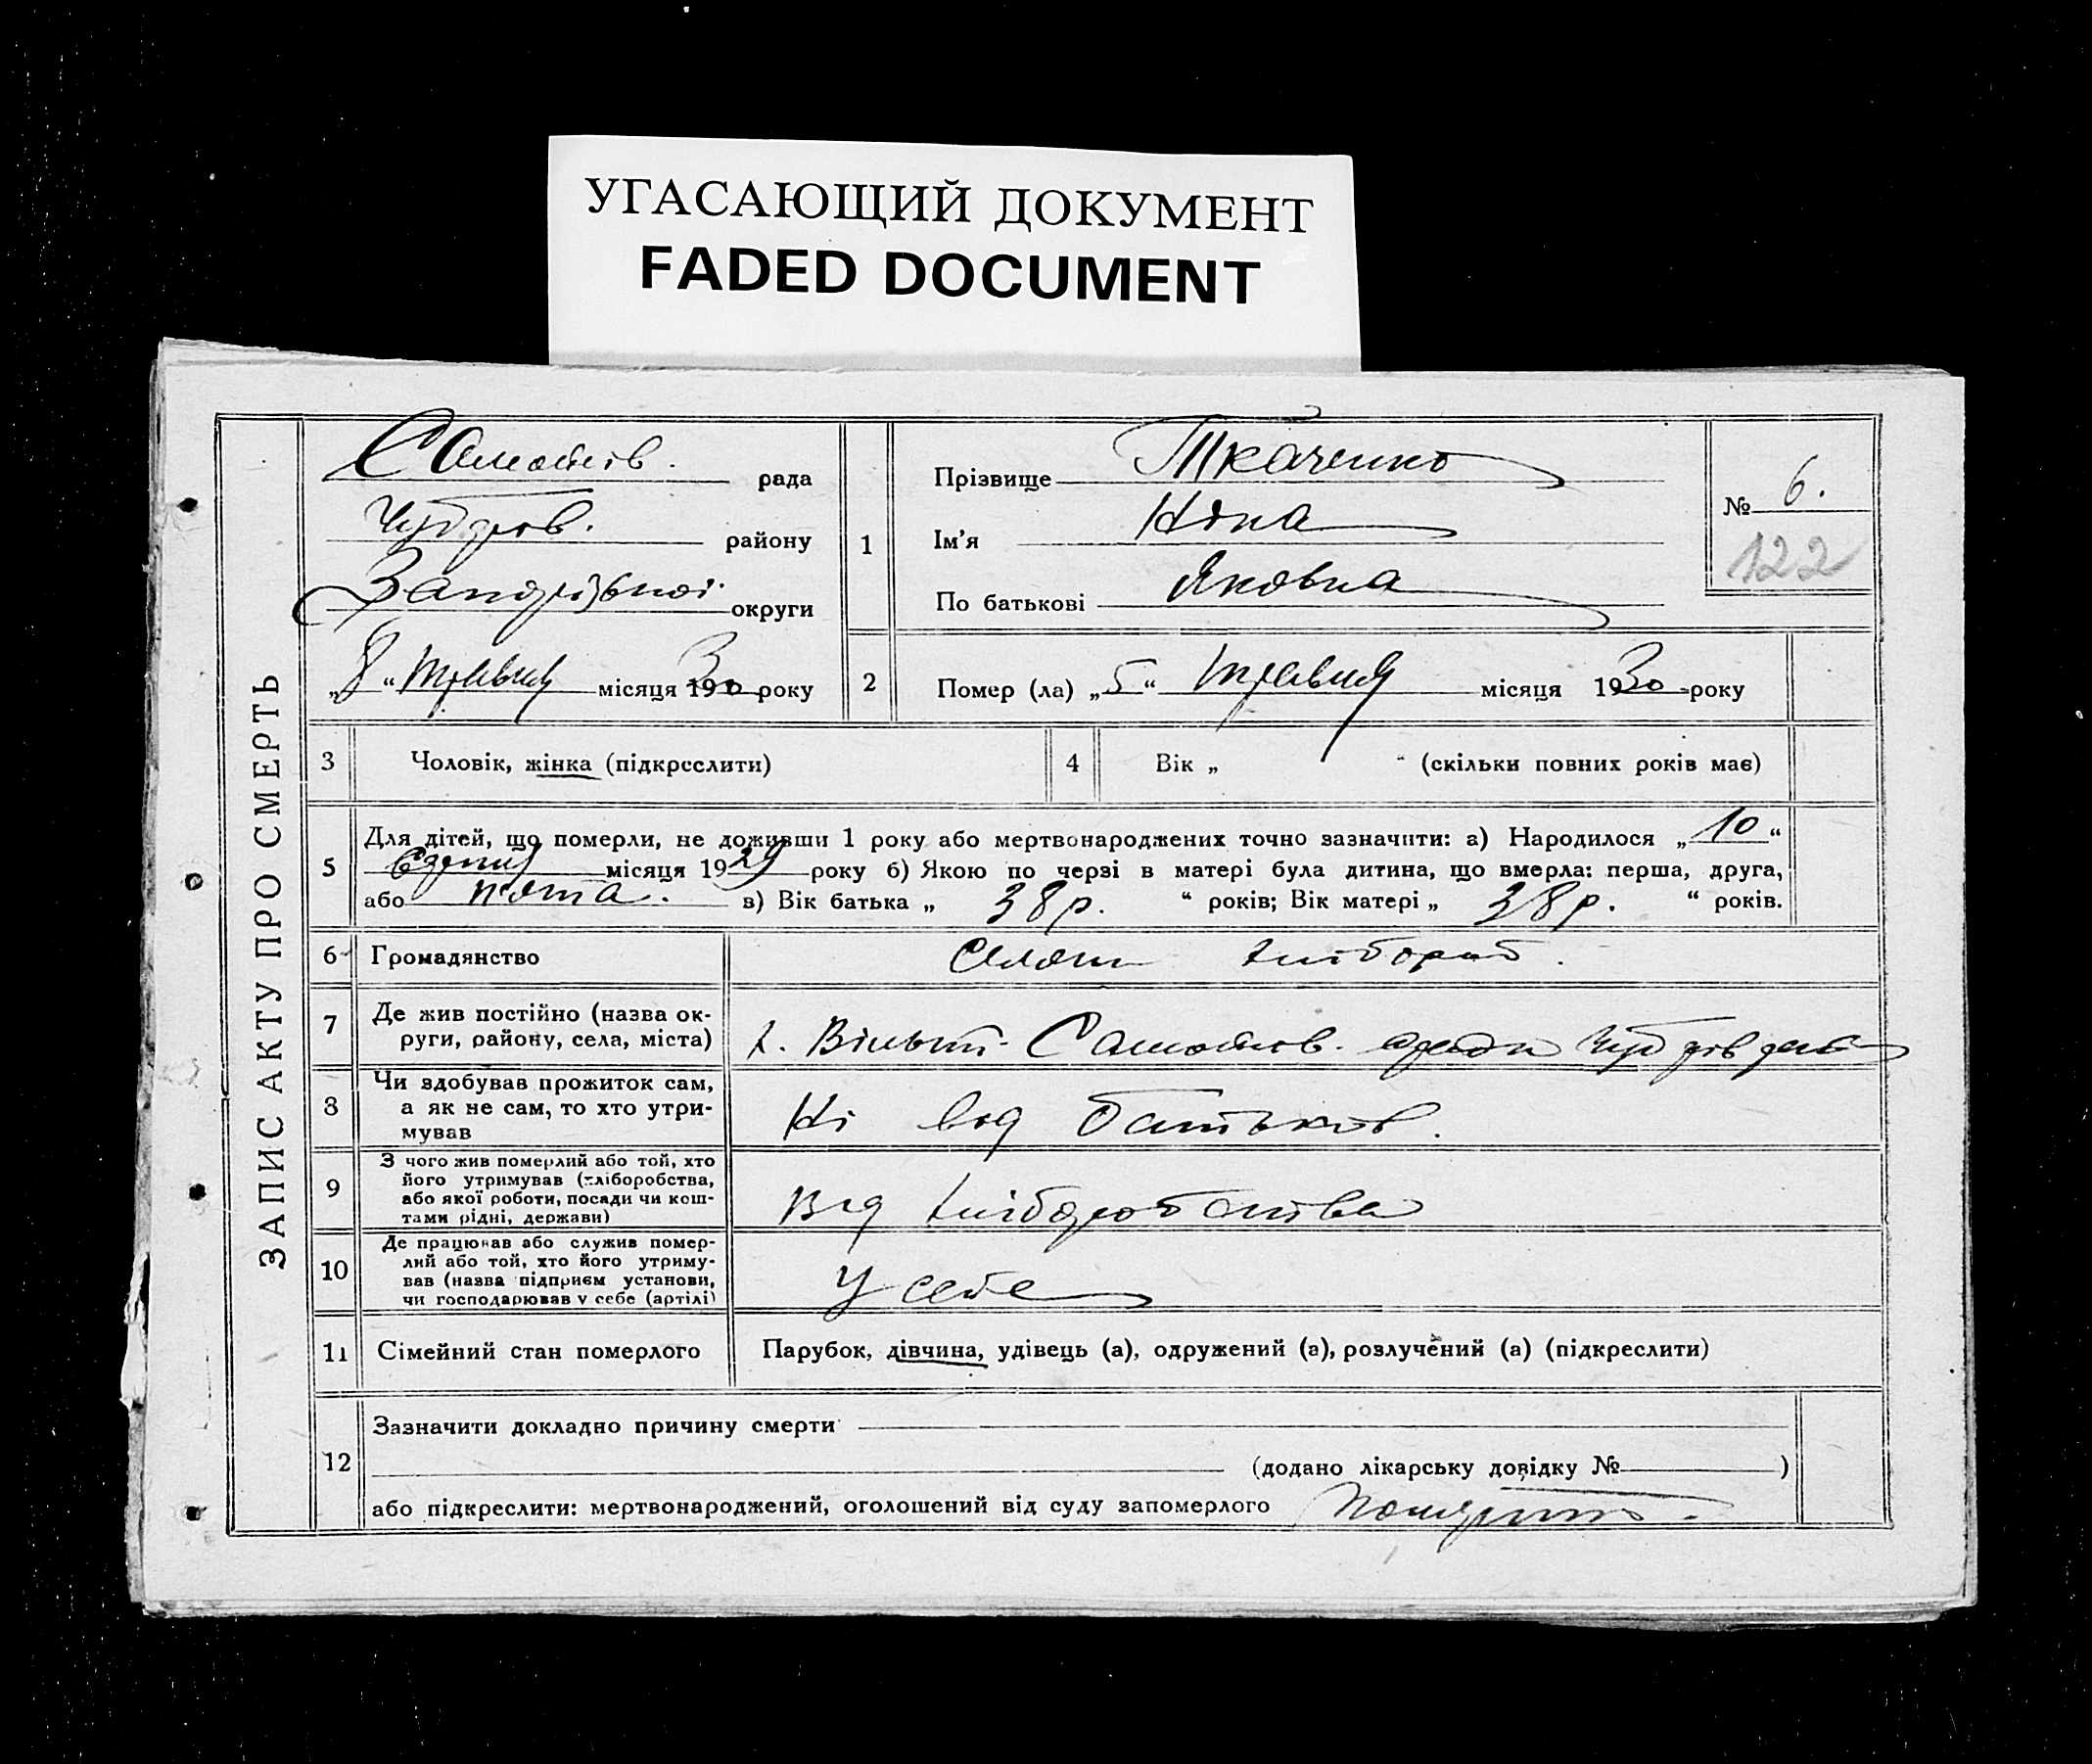 УГАСАЮЩИЙ ДОКУМЕНТ
FADED DOCUMENT
ЗАПИС АКТУ ПРО СМЕРТЬ
рада
Чубарів. району
Запорізької округи
„8“ травня місяця 1930 року
1
Прізвище Ткаченко
Ім'я Ніна
По батькові Яковна
№ 6.
122
2 Помер (ла) „5“ травня місяця 1930 року
3 Чоловік, жінка (підкреслити)
4 Вік „ “ (скільки повних років має)
5 Для дітей, що померли, не доживши 1 року або мертвонароджених точно зазначити: а) Народилося „10“
місяця 1929 року б) Якою по черзі в матері була дитина, що вмерла: перша, друга,
або пята. в) Вік батька „ 38 р. “ років; Вік матері „ 38 р. “ років.
6 Громадянство Селян хлібороб.
7 Де жив постійно (назва ок-
руги, району, села, міста)
8 Чи здобував прожиток сам,
а як не сам, то хто утри-
мував
Ні від батьків.
9 З чого жив померлий або той, хто
його утримував (хліборобства,
або якої роботи, посади чи кош-
тами рідні, держави)
Від хліборобства
10 Де працював або служив помер-
лий або той, хто його утриму-
вав (назва підприєм установи,
чи господарював у себе (артілі)
У себе
11 Сімейний стан померлого Парубок, дівчина, удівець (а), одружений (а), розлучений (а) (підкреслити)
12 Зазначити докладно причину смерти
(додано лікарську довідку № )
або підкреслити: мертвонароджений, оголошений від суду запомерлого